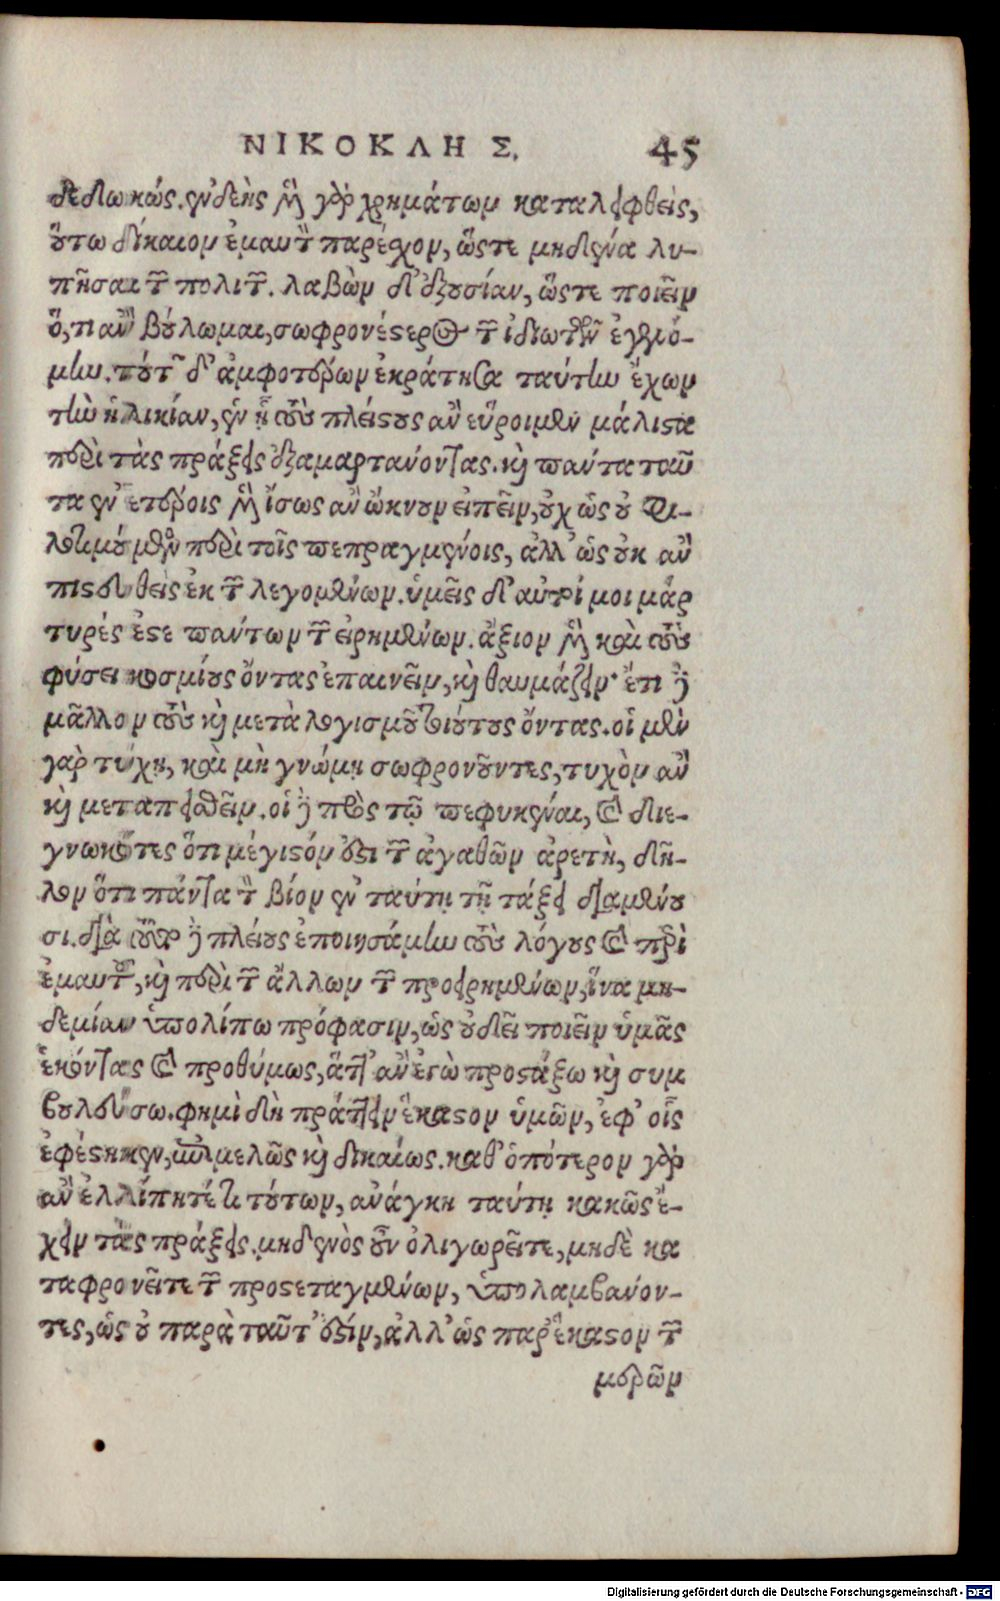 ΝΙΚΟΚΛΗΣ. 45
δεδωκώς. ἐνδεὴς μὲν γὰρ χρημάτων καταλειφθεὶς,
οὕτω δίκαιον ἐμαυτὸν παρέσχον, ὥστε μηδένα λυ-
πῆσαι τῶν πολιτῶν. λαβὼν δ' ἐξουσίαν, ὥστε ποιεῖν
ὅ,τι ἂν βούλωμαι, σωφρονέστερος τῶν ἰδιωτῶν ἐγενό-
μην. τούτων δ' ἀμφοτέρων ἐκράτησα ταύτην ἔχων
τὴν ἡλικίαν, ἐν ᾗ τοὺς πλείστους ἂν εὕροιμεν μάλιστα
περὶ τὰς πράξεις ἐξαμαρτάνοντας. καὶ πάντα ταῦ
τα ἐν ἑτέροις μὲν ἴσως ἂν ὤκνουν εἰπεῖν, οὐχ ὡς οὐ φι-
λοτιμούμενος περὶ τοῖς πεπραγμένοις, ἀλλ' ὡς οὐκ ἂν
πιστευθεὶς ἐκ τῶν λεγομένων. ὑμεῖς δ' αὐτοί μοι μάρ
τυρές ἐστε πάντων τῶν εἰρημένων. ἄξιον μὲν καὶ τοὺς
φύσει κοσμίους ὄντας ἐπαινεῖν, καὶ θαυμάζειν· ἔτι δὲ
μᾶλλον τοὺς καὶ μετὰ λογισμοῦ τοιούτους ὄντας. οἱ μὲν
γὰρ τύχῃ, καὶ μὴ γνώμῃ σωφρονοῦντες, τυχὸν ἂν
καὶ μεταπεισθεῖεν. οἱ δὲ πρὸς τῷ πεφυκέναι, καὶ διε-
γνωκότες ὅτι μέγιστόν ἐστι τῶν ἀγαθῶν ἀρετὴ, δῆ-
λον ὅτι πάντα τὸν βίον ἐν ταύτῃ τῇ τάξει διαμένου
σι. διὰ τοῦτο δὲ πλείους ἐποιησάμην τοὺς λόγους καὶ περὶ
ἐμαυτοῦ, καὶ περὶ τῶν ἄλλων τῶν προειρημένων, ἵνα μη-
δεμίαν ὑπολίπω πρόφασιν, ὡς οὐ δεῖ ποιεῖν ὑμᾶς
ἑκόντας καὶ προθύμως, ἅττ' ἂν ἐγὼ προστάξω καὶ συμ
βουλεύσω. φημὶ δὴ πράττειν ἕκαστον ὑμῶν, ἐφ' οἷς
ἐφέστηκεν, ἐπιμελῶς καὶ δικαίως. καθ' ὁπότερον γὰρ
ἂν ἐλλίπητέ τι τούτων, ἀνάγκη ταύτῃ κακῶς ἔ-
χειν τὰς πράξεις. μηδενὸς οὖν ὀλιγωρεῖτε, μηδὲ κα
ταφρονεῖτε τῶν προστεταγμένων, ὑπολαμβάνον-
τες, ὡς οὐ παρὰ ταῦτ' ἐστίν, ἀλλ' ὡς παρ' ἕκαστον τῶν
μερῶν
Digitalisierung gefördert durch die Deutsche Forschungsgemeinschaft - DFG